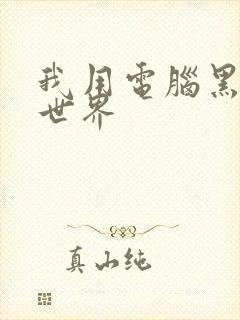 我用電腦黑
世界
真山純